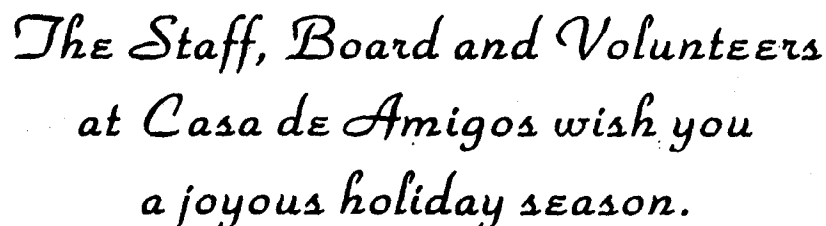 The Staff, Board and Volunteers
at Casa de Amigos wish you
a joyous holiday season.